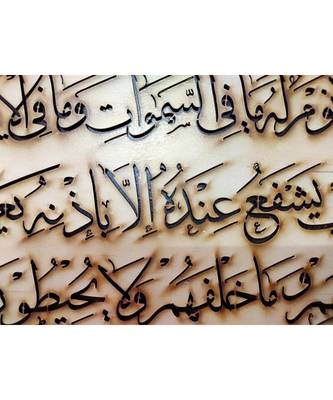 نوم له ما في السَّموَاتِ وَمَا فِي
يَشْفَعُ عِنْدَهُ إِلَّا بِإِذْنِهِ
وَمَا خَلْفَهُمْ وَلَا يُحِيطُونَ